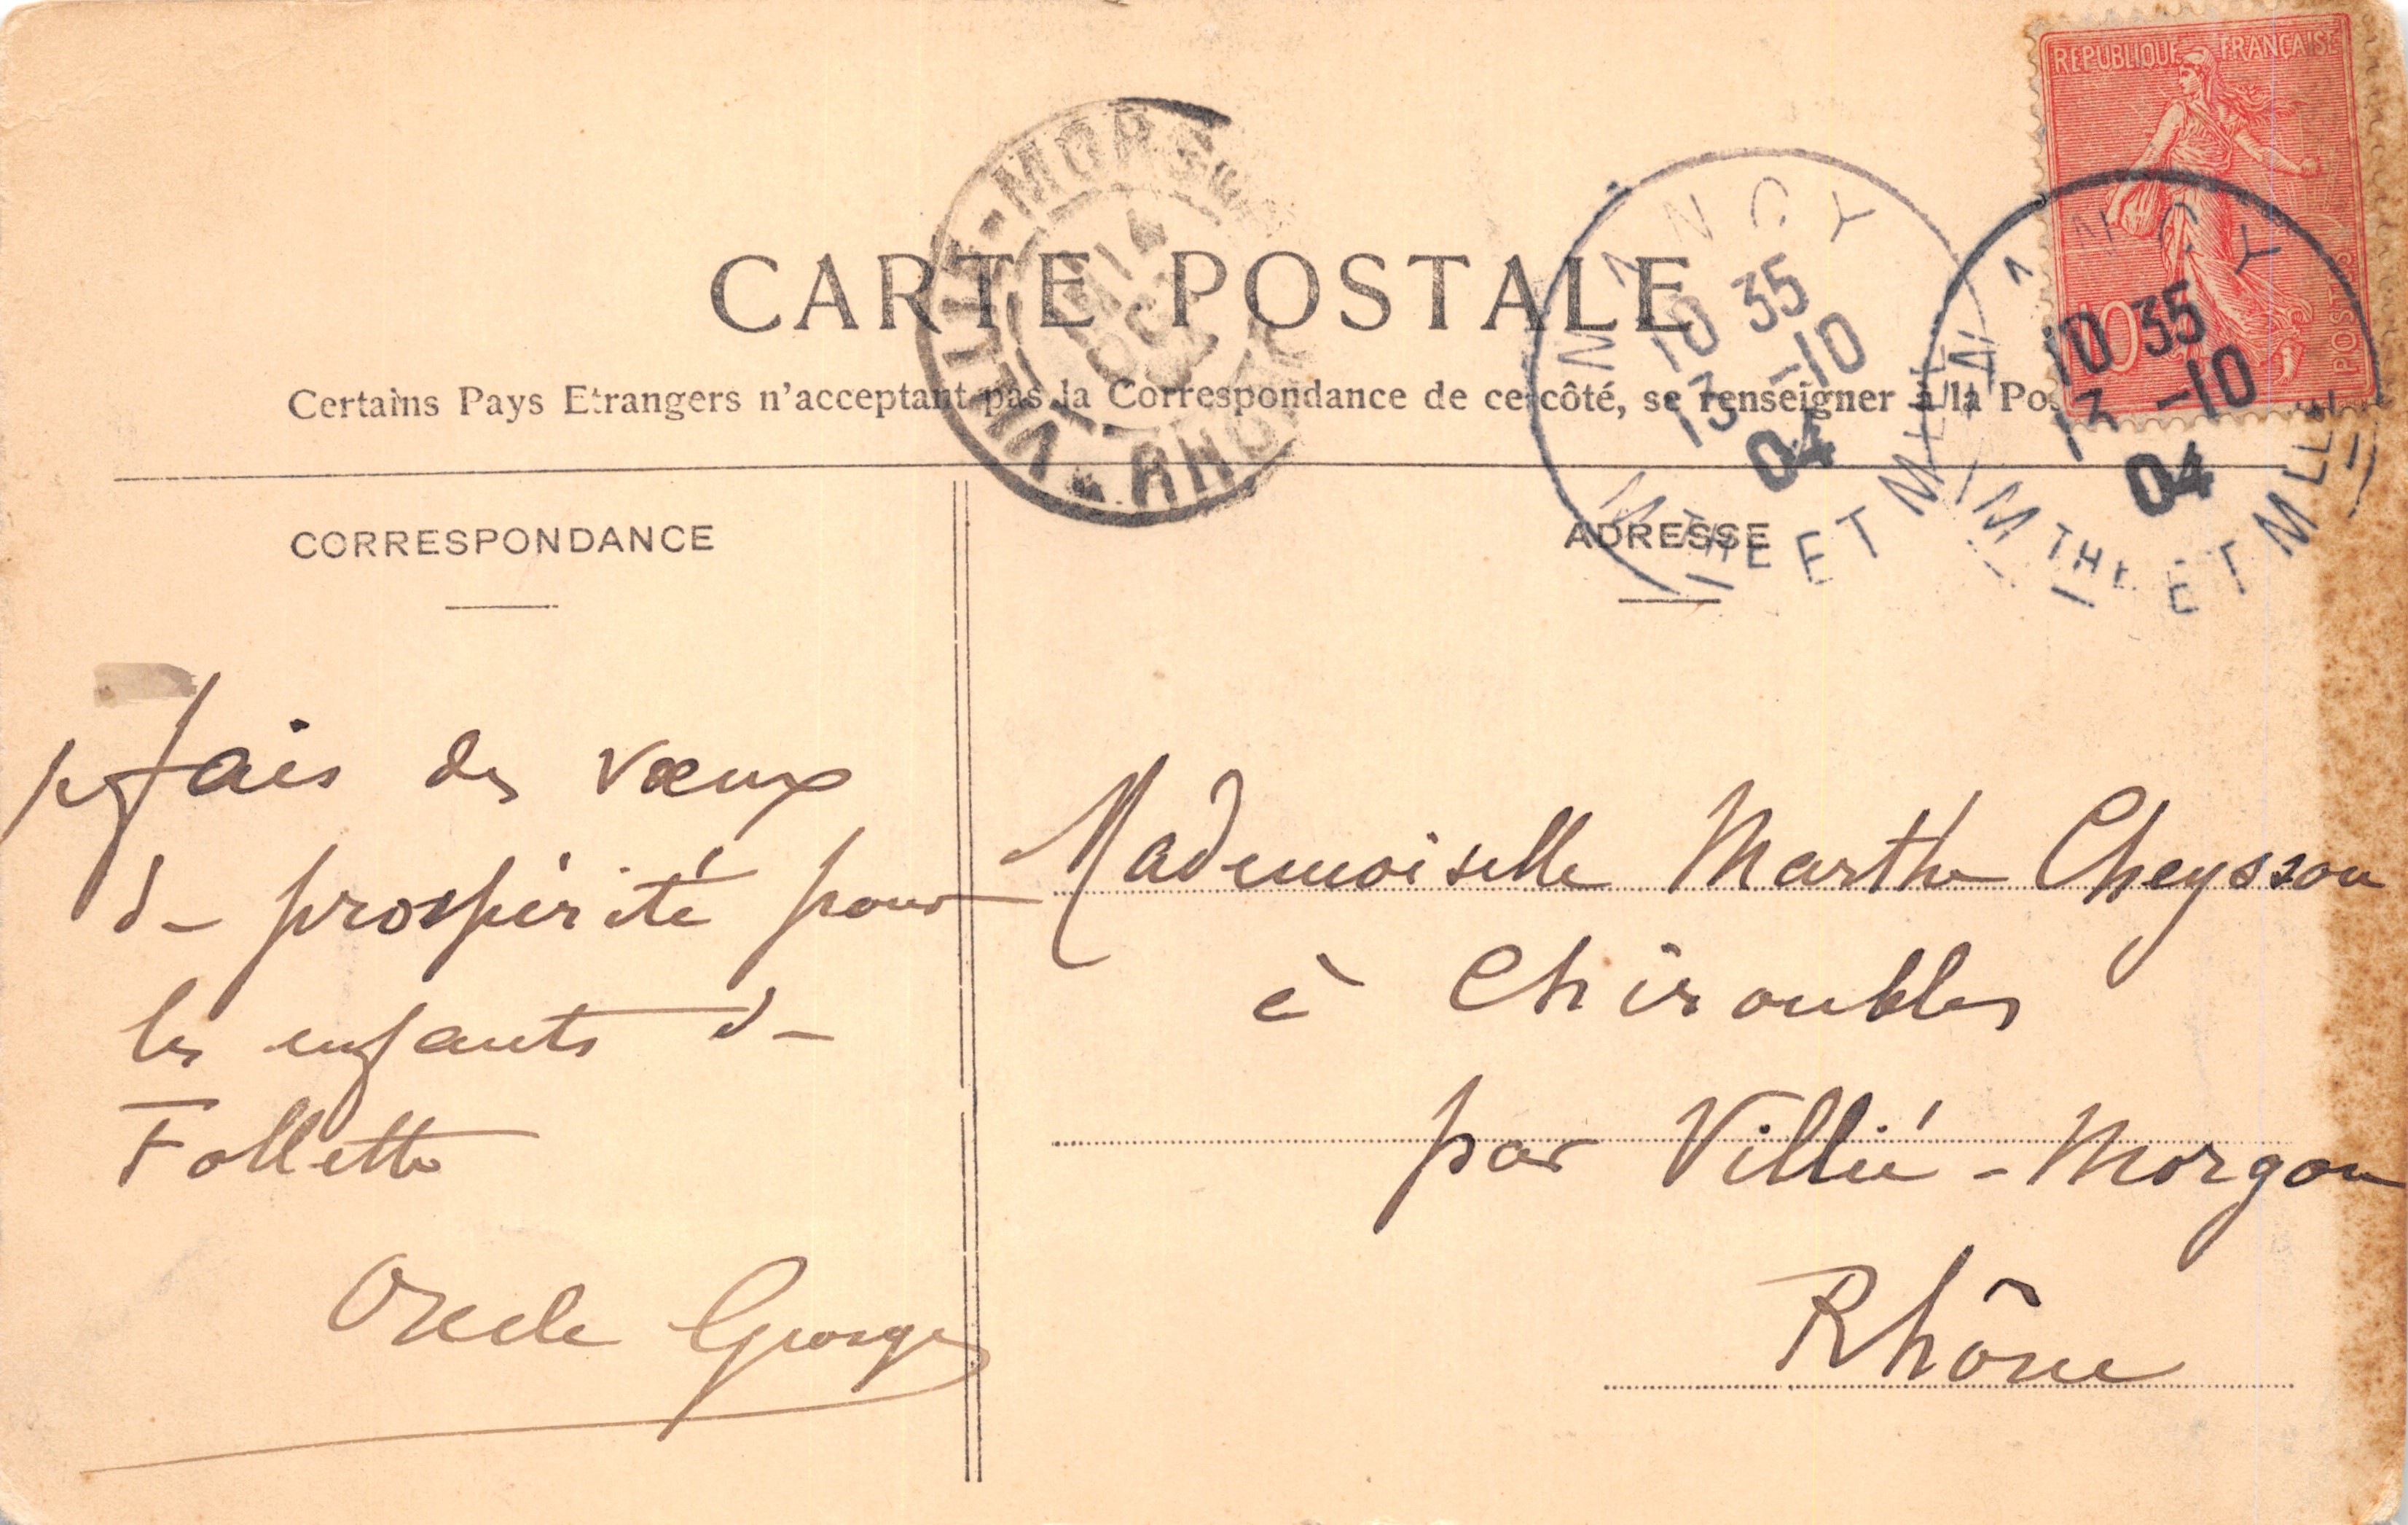 REPUBLIQUE FRANÇAISE
POSTES
10
VILLIÉ-MORGON
14
OCT
04
RHONE
NANCY
10 35
13 -10
04
MTHE ET MLLE
NANCY
10 35
13 -10
04
MTHE ET MLLE
CARTE POSTALE
Certains Pays Etrangers n'acceptant pas la Correspondance de ce côté, se renseigner à la Pos
CORRESPONDANCE
ADRESSE
je fais des vœux
de prospérité pour
les enfants de
Follette
Oncle Georges
Mademoiselle Marthe Cheysson
à Chiroubles
par Villié-Morgon
Rhône